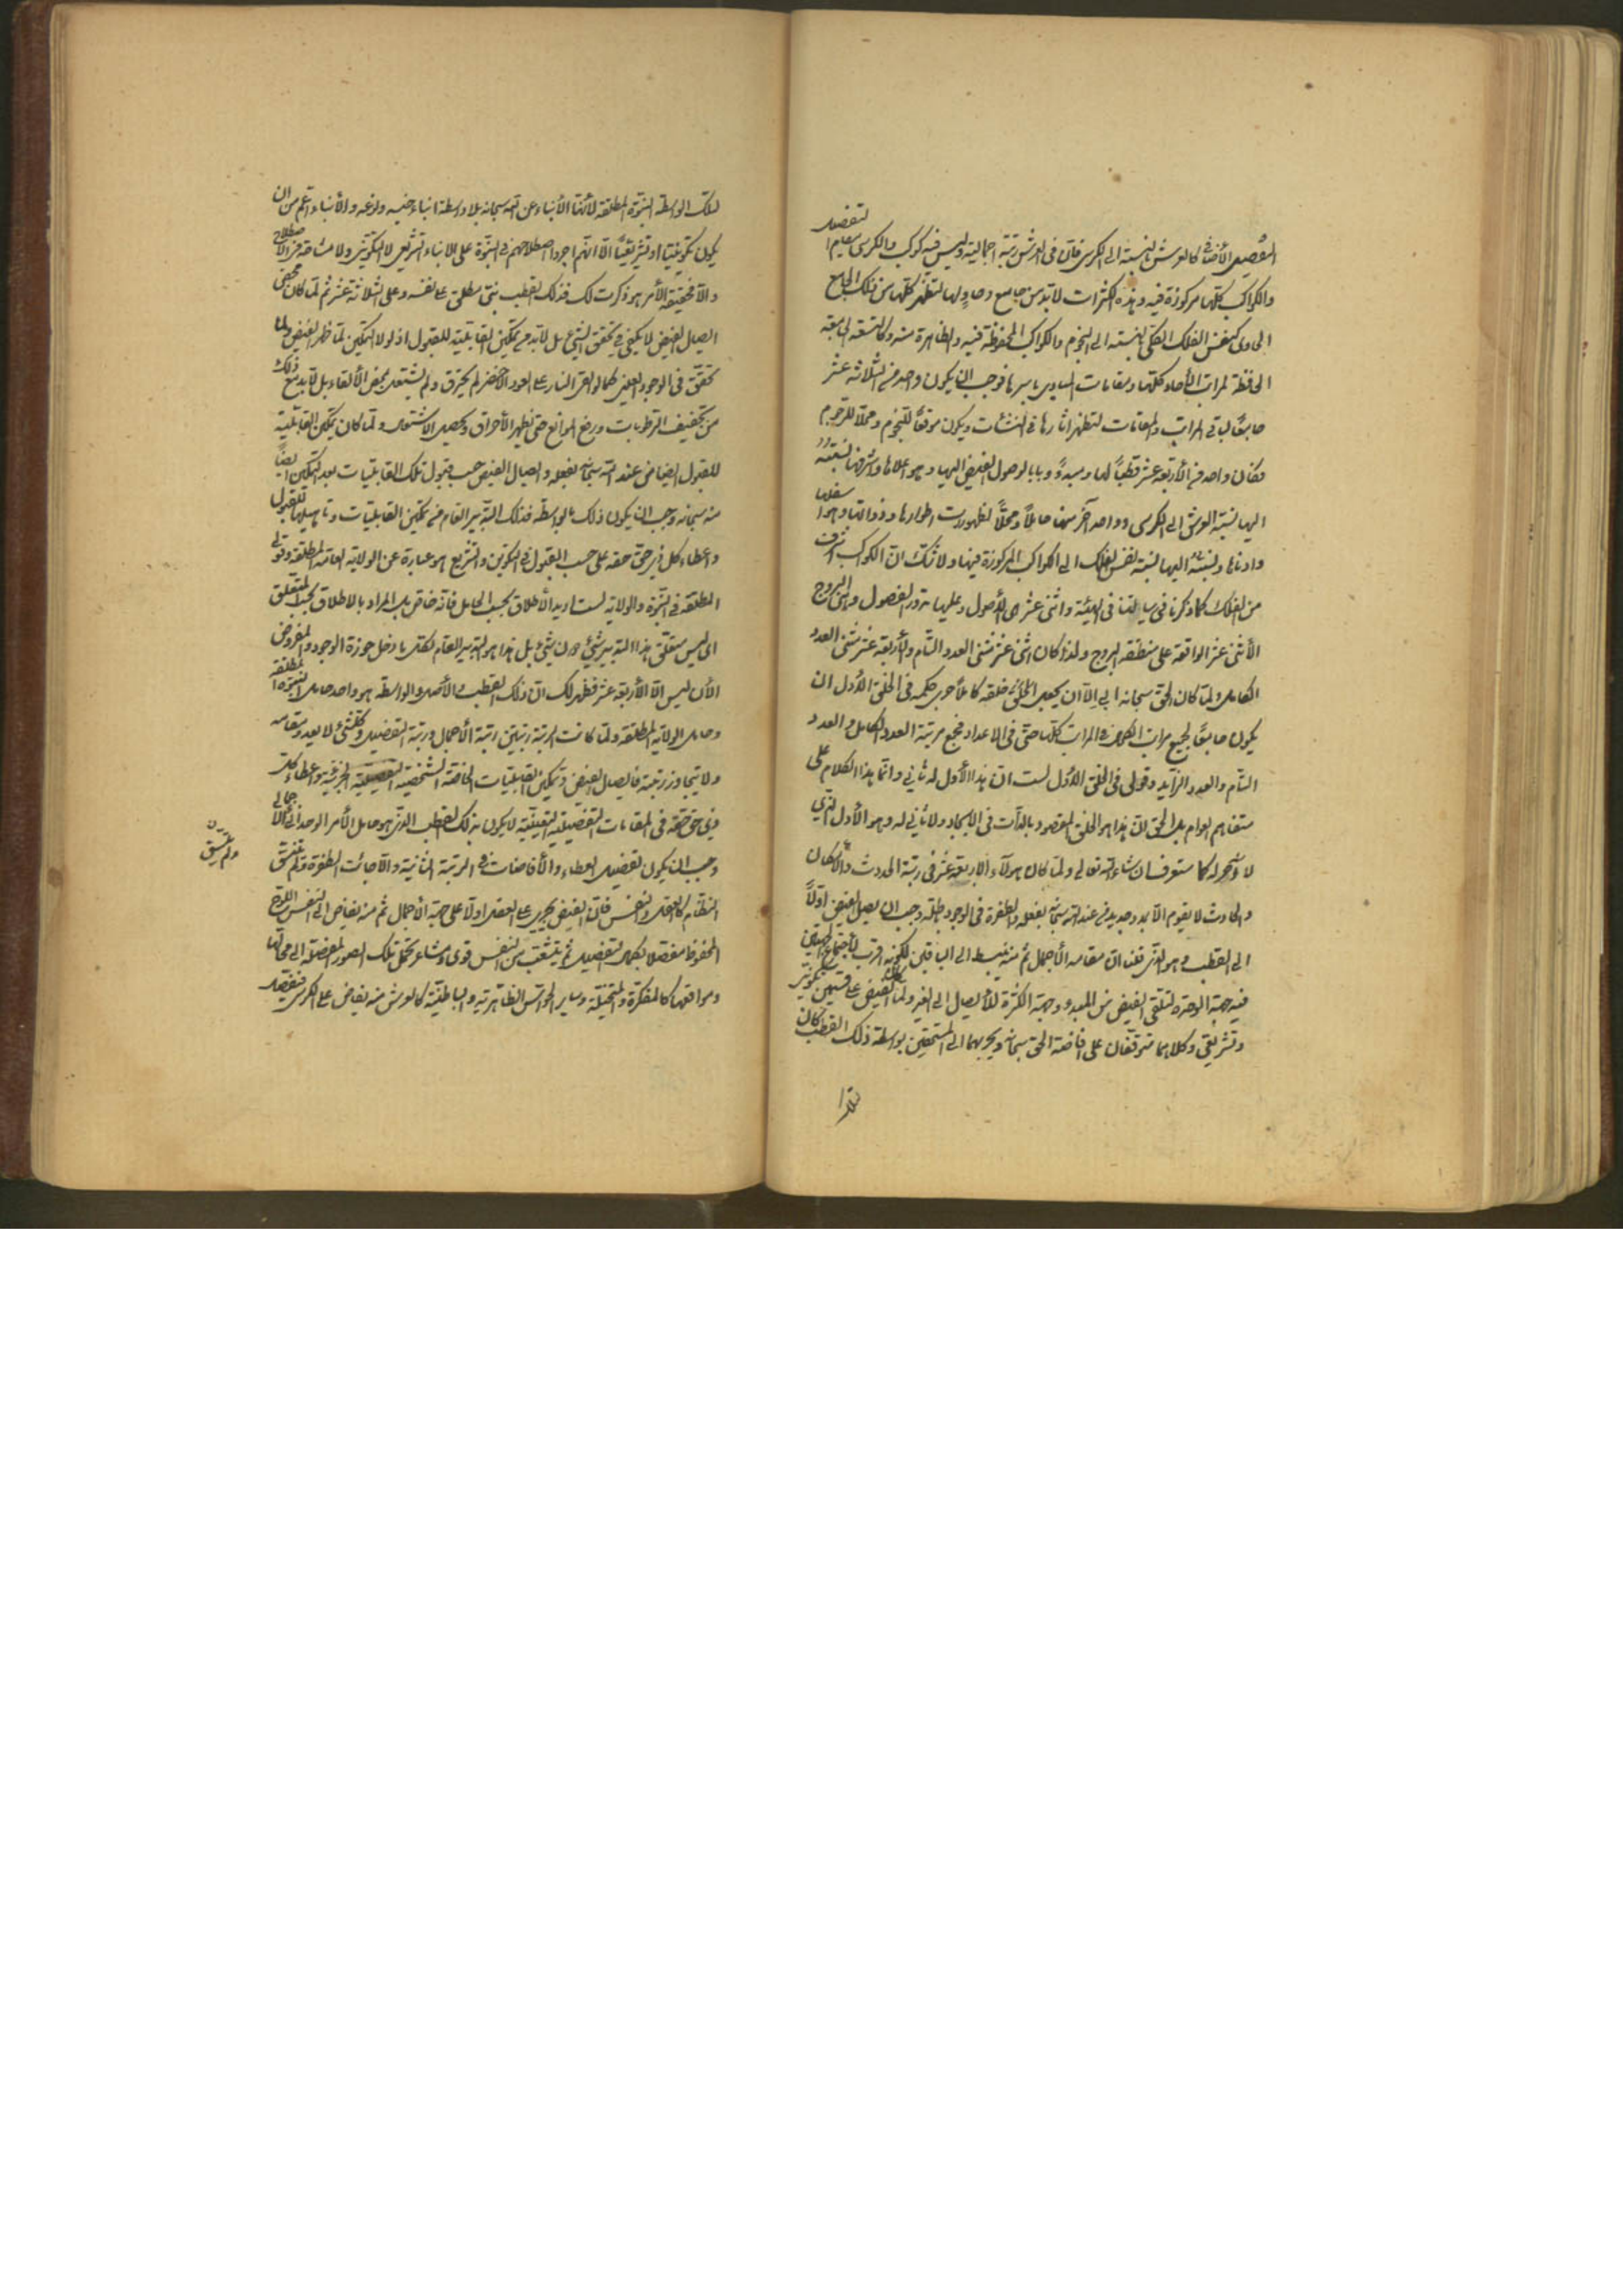 التفصيل الأضافي كالعرش بالنسبة الى الكرسي فان في العرش رتبة اجمالية وليس فيه كوكب والكرسي مقام التفصيل
والكواكب كلها مركوزة فيه وهذه الكثرات لا بد من جامع وحاو لها لتظهر كلها من ذلك الجامع
الحاوي كنفس الفلك الكلي بالنسبة الى النجوم والكواكب المحفوظة فيه والظاهرة منه وكالتسعة الجامعة
الحافظة لمراتب الأحاد كلها ومقامات المبادي باسرها فوجب ان يكون واحد من الثلاثة عشر
جامعا لباقي المراتب والمقامات لتظهر اثارها في النشئات ويكون موقعا للنجوم ومحلا للرجوم
فكان واحد من الأربعة عشر قطبا لها ومبدءً وبابا لوصول الفيض اليها وهو اعلاها واشرفها نسبته
اليها نسبة العرش الى الكرسي وواحد آخر منها حاملا ومحلا لظهورات اطوارها وذواتها وهو اسفلها
وادناها ونسبته اليها نسبة نفس الفلك الى الكواكب المركوزة فيها ولا شك ان الكوكب اشرف
من الفلك كما ذكرنا في رسالتنا في الهيئة واثنى عشر هي الأصول وعليها تدور الفصول وهي البروج
الأثنى عشر الواقعة على منطقة البروج ولذا كان اثنى عشر مثنى العدد التام والأربعة عشر مثنى العدد
الكامل ولما كان الحق سبحانه ابى الا ان يجعل خلقه كاملا جرى حكمه في الخلق الأول ان
يكون جامعا لجميع مراتب الكمال في المراتب كلها حتى في الاعداد فجمع مرتبة العدد الكامل والعدد
التام والعدد الزايد وقولي في الخلق الأول لست ان هذا الأول له ثاني وانما هذا الكلام على
متفاهم العوام بل الحق ان هذا هو الخلق المقصود بالذات في الايجاد ولا ثاني له وهو الأول الذي
لا آخر له كما ستعرف ان شاء الله تعالى ولما كان هولاء الأربعة عشر في رتبة الحدوث والأمكان
والحادث لا يقوم الا بمدد جديد من عند الله سبحانه بفعله والطفرة في الوجود باطلة وجب ان يصل الفيض اولاً
الى القطب وهو الذي قلنا ان مقامه الأجمال ثم منه ينبسط الى الباقين لكونه اقرب لأجتماع الجهتين
فيه جهة الوحدة لتلقي الفيض من المبدء وجهة الكثرة للأيصال الى الغير ولما كان الفيض على قسمين تكويني
وتشريعي وكلاهما متوقفان على افاضة الحق سبحانه ويجريهما الى المستحقين بواسطة ذلك القطب كان
لتلك الواسطة النبوة المطلقة لأنها الأنباء عن الله سبحانه بلا واسطة انباء جنسه ونوعه والأنباء اعم من ان
يكون تكوينيا او تشريعيًا الا انهم اجروا اصطلاحهم في النبوة على الانباء التشريعي لا التكويني ولا مشاحة في الاصطلاح
والا فحقيقة الأمر هو ذكرت لك فذلك القطب نبي مطلق على نفسه وعلى الثلاثة عشر ثم لما كان محض
ايصال الفيض لا يكفي في تحقق الشيء بل لا بد من تمكين القابلية للقبول اذ لولا التمكين لما ظهر الفيض ولما
تحقق في الوجود العيني كما لو القى النار على العود الأخضر لم يحترق ولم يشتعل بمحض الألقاء بل لا بد مع ذلك
من تجفيف الرطوبات ورفع الموانع حتى يظهر الأحراق ويحصل الاشتعال ولما كان تمكين القابلية
للقبول ايضا من عند الله سبحانه بفعله وايصال الفيض حسب قبول تلك القابليات بعد التمكين ايضاً
منه سبحانه وجب ان يكون ذلك بالواسطة فذلك التدبير العام من تمكين القابليات وتاهيلها للقبول
واعطاء كل ذي حق حقه على حسب القبول في التكوين والتشريع هو عبارة عن الولاية العامة المطلقة وقولي
المطلقة في النبوة والولاية لست اريد الأطلاق بحسب الحامل فانه خاص بل المراد بالاطلاق بحسب المتعلق
اى ليس متعلق هذا التدبير شيئ دون شيئ بل هذا هو التدبير العام لكل ما دخل حوزة الوجود والمفروض
الأن ليس الا الأربعة عشر فظهر لك ان ذلك القطب والأصل والواسطة هو واحد حامل النبوة المطلقة
وحامل الولاية المطلقة ولما كانت الرتبة رتبتين رتبة الأجمال ورتبة التفصيل وكلشئ لا يعدو مقامه
ولا يتجاوز رتبته فايصال الفيض وتمكين القابليات الخاصة الشخصية التفصيلية الجزئية واعطاء كل
ذي حق حقه في المقامات التفصيلية التعينية لا يكون بذلك القطب الذي هو حامل الأمر الوحداني الأجمالي
وجب ان يكون تفصيل العطاء والأفاضات في الرتبة الثانية والا جائت الطفرة ولم يتسق
ولم يتسق ن
النظام كالعقل والنفس فان الفيض يجري على العقل اولا على جهة الأجمال ثم منه يفاض الى النفس اللوح
المحفوظ مفصلا بكمال التفصيل ثم يتشعب من النفس قوى ومشاعر تحمل تلك الصور المفصلة الى محالها
ومواقعها كالمفكرة والمتخيلة وساير الحواس الظاهرية والباطنية كالعرش منه يفاض على الكرسي فتفصل
لتلك